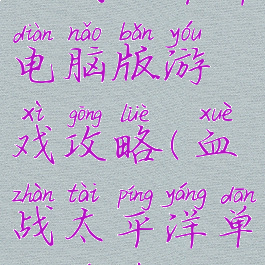 diàn nǎo bǎn yóu
电脑版游
xì gōng lüè xuè
戏攻略(血
zhàn tài píng yáng dān
战太平洋单